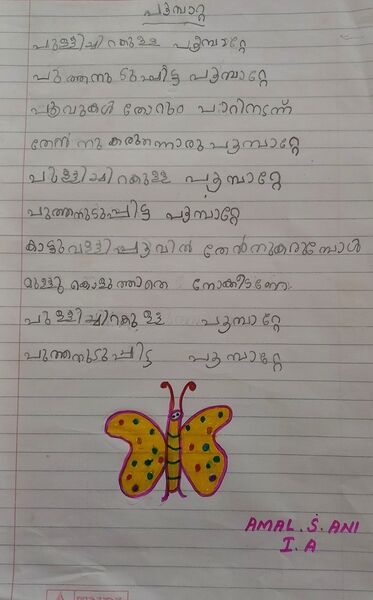 പൂമ്പാറ്റ
പുള്ളിച്ചിറകുള്ള പൂമ്പാറ്റേ
പുത്തനുടുപ്പിട്ട പൂമ്പാറ്റേ
പൂവുകൾ തോറും പാറിനടന്ന്
തേൻ നുകരുന്നൊരു പൂമ്പാറ്റേ
പുള്ളിച്ചിറകുള്ള പൂമ്പാറ്റേ
പുത്തനുടുപ്പിട്ട പൂമ്പാറ്റേ
കാട്ടുവള്ളിപ്പൂവിൻ തേൻനുകരുമ്പോൾ
മുള്ളു കൊള്ളാതെ നോക്കീടണേ
പുള്ളിച്ചിറകുള്ള പൂമ്പാറ്റേ
പുത്തനുടുപ്പിട്ട പൂമ്പാറ്റേ
AMAL.S.ANI
I.A